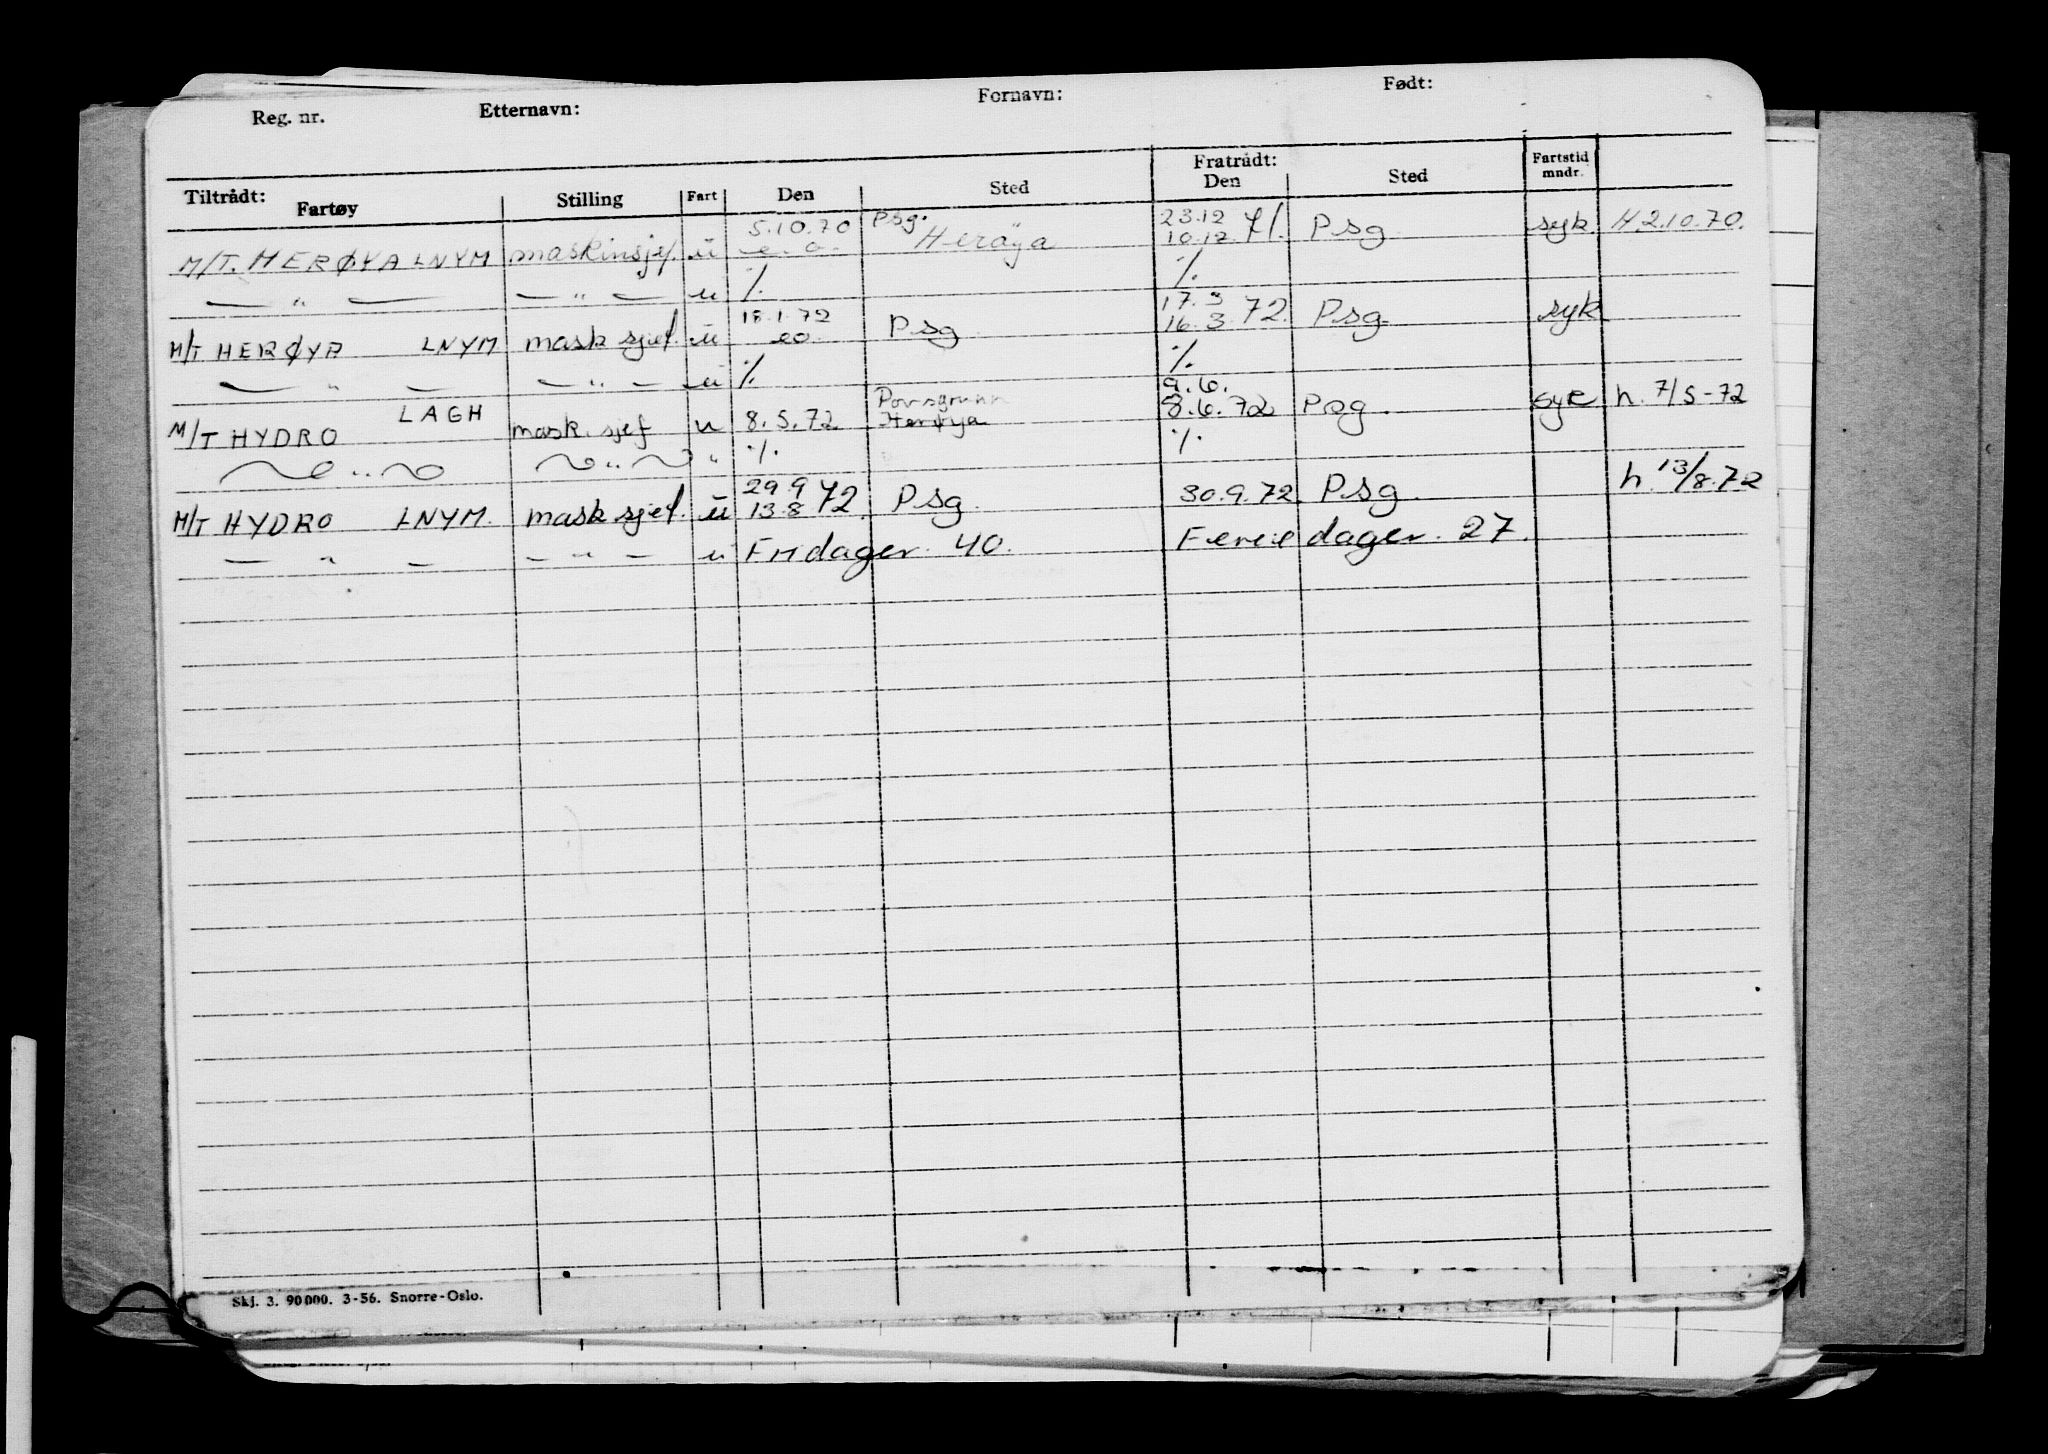 Reg. nr. Etternavn: Fornavn: Født:
Tiltrådt: Fratrådt:
Fartøy Stilling Fart Den Sted Den Sted Fartstid mndr.
5.10.70 Psg. 23.12
M/T. HERØYA LNYM maskinsjef. u e.o. Herøya 10.12. 71. Psg syk. H 2.10.70.
— " — — " — u % %
18.1.72 17.3
M/T HERØYA LNYM mask sjef. u eo. Psg 16.3 72. Psg. syk
— " — — " — u % %
LAGH Porsgrunn 9.6.
M/T HYDRO mask. sjef u 8.5.72 Herøya 8.6.72 Psg. syk h. 7/5-72
" " " % %
29.9
M/T HYDRO LNYM. mask sjef. u 13.8 72. Psg. 30.9.72 Psg. h. 13/8.72
— " — — " — u Fridager. 40. Ferie dager. 27.
Skj. 3. 90000. 3-56. Snorre-Oslo.